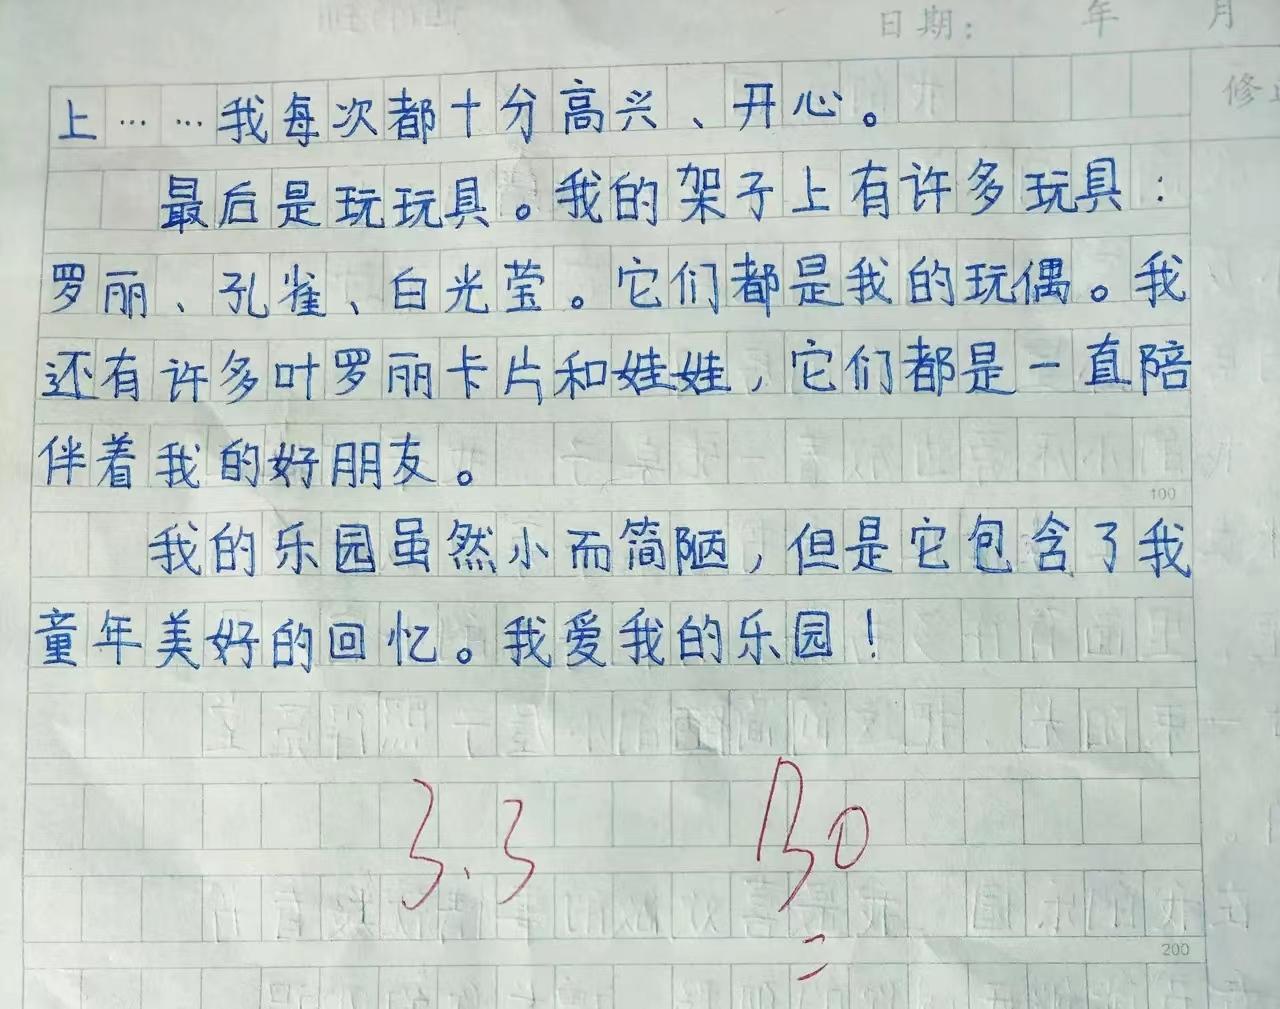 日期： 年 月
上……我每次都十分高兴、开心。
最后是玩玩具。我的架子上有许多玩具：
罗丽、孔雀、白光莹。它们都是我的玩偶。我
还有许多叶罗丽卡片和娃娃，它们都是一直陪
伴着我的好朋友。
100
我的乐园虽然小而简陋，但是它包含了我
童年美好的回忆。我爱我的乐园！
3.3
200